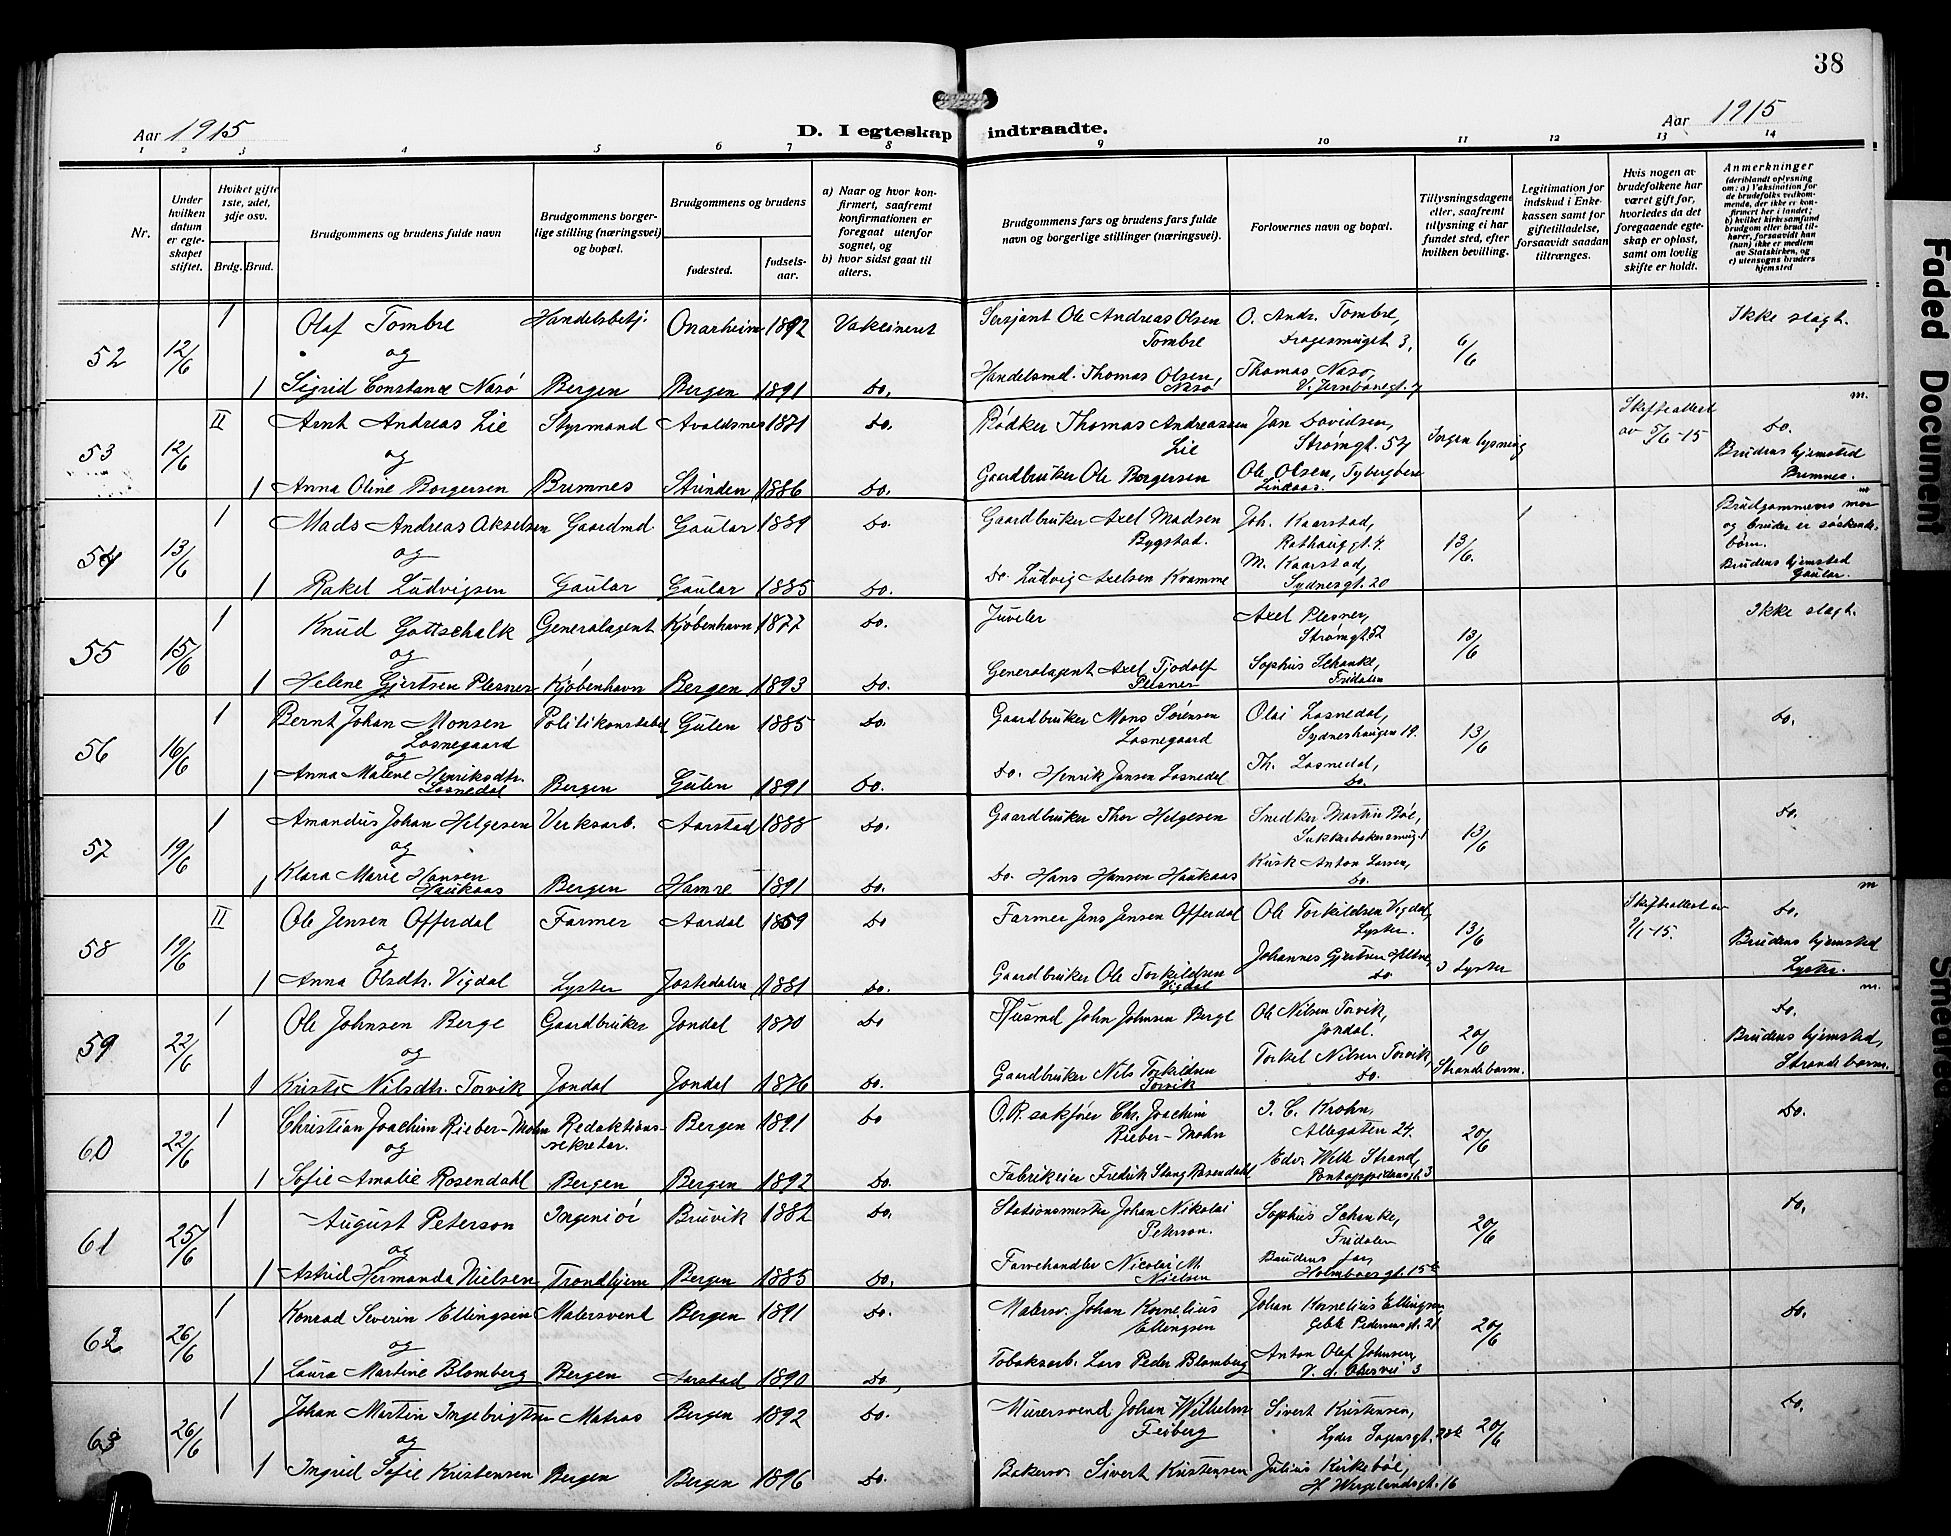 38
Aar 1915
D. I egteskap indtraadte.
Aar 1915
1 2 3 4 5 6 7 8 9 10 11 12 13 14
Nr.
Under hvilken datum er egteskapet stiftet.
Hviket gifte 1ste, 2det, 3dje osv.
Brdg. Brud.
Brudgommens og brudens fulde navn
Brudgommens borgerlige stilling (næringsvei) og bopæl.
Brudgommens og brudens
fødested.
fødselsaar.
a) Naar og hvor konfirmert, saafremt konfirmationen er foregaat utenfor sognet, og
b) hvor sidst gaat til alters.
Brudgommens fars og brudens fars fulde navn og borgerlige stillinger (næringsvei).
Forlovernes navn og bopæl.
Tillysningsdagene eller, saafremt tillysning ei har fundet sted, efter hvilken bevilling.
Legitimation for indskud i Enkekassen samt for giftetilladelse, forsaavidt saadan tiltrænges.
Hvis nogen av brudefolkene har været gift før, hvorledes da det foregaaende egteskap er opløst, samt om lovlig skifte er holdt.
Anmerkninger
(deriblandt oplysning om: a) Vaksination for de brudefolks vedkommende, der ikke er konfirmert her i landet; b) hvilket kirkesamfund brudgom eller brud tilhører, forsaavidt han (hun) ikke er medlem av Statskirken, og c) utensogns bruders hjemsted
52 12/6 1 Olaf Tombre Handelsbetj. Onarheim 1892 Vakcineret Sersjant Ole Andreas Olsen Tombre O. Andr. Tombre, Dragesmuget 3, 6/6 Ikke slegt.
og
1 Sigrid Constance Næsø Bergen Bergen 1891 Do. Handelsmd. Thomas Olsen Næsø Thomas Næsø, V. Jernbanegt. 7
53 12/6 II Arnt Andreas Lie Styrmand Avaldsnes 1871 Do. Bødker Thomas Andreassen Lie Jan Davidsen, Strømgt. 54 Ingen lysning Skifteattest av 5/6-15 m. Do. Brudens hjemsted Bremnes.
og
1 Anna Oline Borgersen Bremnes Strinden 1886 Do. Gaardbruker Ole Borgersen Ole Olsen, Lindaas.
54 13/6 1 Mads Andreas Akselsen Gaardmd. Gaular 1889 Do Gaardbruker Axel Madsen Bygstad. Joh. Kaarstad, Rothauggt. 4. 13/6. Brudgommens mor og bruden er søskendebørn. Brudens hjemsted Gaular.
og
1 Rakel Ludvigsen Gaular Gaular 1885 Do. Do. Ludvig Axelsen Kvamme M. Kaarstad, Sydnesgt. 20
55 15/6 1 Knud Gottschalk Generalagent Kjøbenhavn 1877 Do. Juveler Axel Plesner, Strømgt. 52 13/6 Ikke slegt.
og
1 Helene Gjertsen Plesner Kjøbenhavn Bergen 1893 Do. Generalagent Axel Tjodolf Plesner Sophus Schanke, Fridalen
56 16/6 1 Bernt Johan Monsen Losnegaard Politikonstabel Gulen 1885 Do Gaardbruker Mons Sørensen Losnegaard Olai Losnedal, Sydneshaugen 19. 13/6 Do.
og
1 Anna Malene Henriksdtr. Losnedal Bergen Gulen 1891 Do. Do. Henrik Jansen Losnedal Th. Losnedal, Do.
57 19/6 1 Amandus Johan Helgesen Verksarb. Aarstad 1888 Do. Gaardbruker Thor Helgesen Smedker Martin Bøe, Sukkerbakersmug. 1 13/6 Do.
og
1 Klara Marie Hansen Haukaas Bergen Hamre 1891 Do. Do. Hans Hansen Haukaas Kusk Anton Larsen, Do.
58 19/6 II Ole Jensen Offerdal Farmer Aardal 1859 Do Farmer Jens Jensen Offerdal Ole Torkildsen Vigdal, Lyster. 13/6 i Lyster Skifteattest av 9/1-15. m Do. Brudens hjemsted Lyster.
og
1 Anna Olsdtr. Vigdal Lyster Jostedalen 1881 Do. Gaardbruker Ole Torkildsen Vigdal Johannes Gjertsen Do
59 22/6 1 Ole Johnsen Berge Gaardbruker Jondal 1870 Do Husmd John Johnsen Berge Ole Nilsen Torvik, Jondal. 20/6 Strandebarm. m. Do. Brudens hjemsted, Strandebarm.
og
1 Kristi Nilsdtr. Torvik Jondal Jondal 1876 Do. Gaardbruker Nils Torkildsen Torvik Torkel Nilsen Torvik, Do.
60 22/6 1 Christian Joachim Rieber-Mohn Redaktionssekretær. Bergen 1891 Do O.R. sakfører Chr. Joachim Rieber-Mohn I. C. Krohn, Allegaten 24. 20/6 Do.
og
1 Sofie Amalie Rosendahl Bergen Bergen 1892 Do. Fabrikeier Fredrik Stang Rosendahl Edv. Welle Strand, Pontoppidansgt 3
61 25/6 1 August Peterson Ingeniør Bruvik 1882 Do. Stationsmester Johan Nikolai Peterson. Sophus Schanke, Fridalen 20/6 Do.
og
1 Astrid Hermanda Nielsen Trondhjem Bergen 1885 Do. Farvehandler Nicolai M. Nielsen Brudens far, Holmboesgt. 15
62 26/6 1 Konrad Severin Ellingsen Malersvend Bergen 1891 Do. Malersv. Johan Kornelius Ellingsen Johan Kornelius Ellingsen Gebh Pedersensgt. 21 20/6 Do.
og
1 Laura Martine Blomberg Bergen Aarstad 1890 Do, Tobaksarb. Lars Peder Blomberg Anton Olaf Johnsen, 3
63 26/6 1 Johan Martin Ingebrigtsen Matros Bergen 1892 Do. Murersvend Johan Wilhelm Feiberg Sivert Kristensen, Lyder Sagensgt. 20/6 Do.
og
1 Ingrid Sofie Kristensen Bergen Bergen 1896 Do. Bakersv. Sivert Kristensen Julius Kirkebøe, H. Wergelandsgt. 16
Faded Document
Smeared